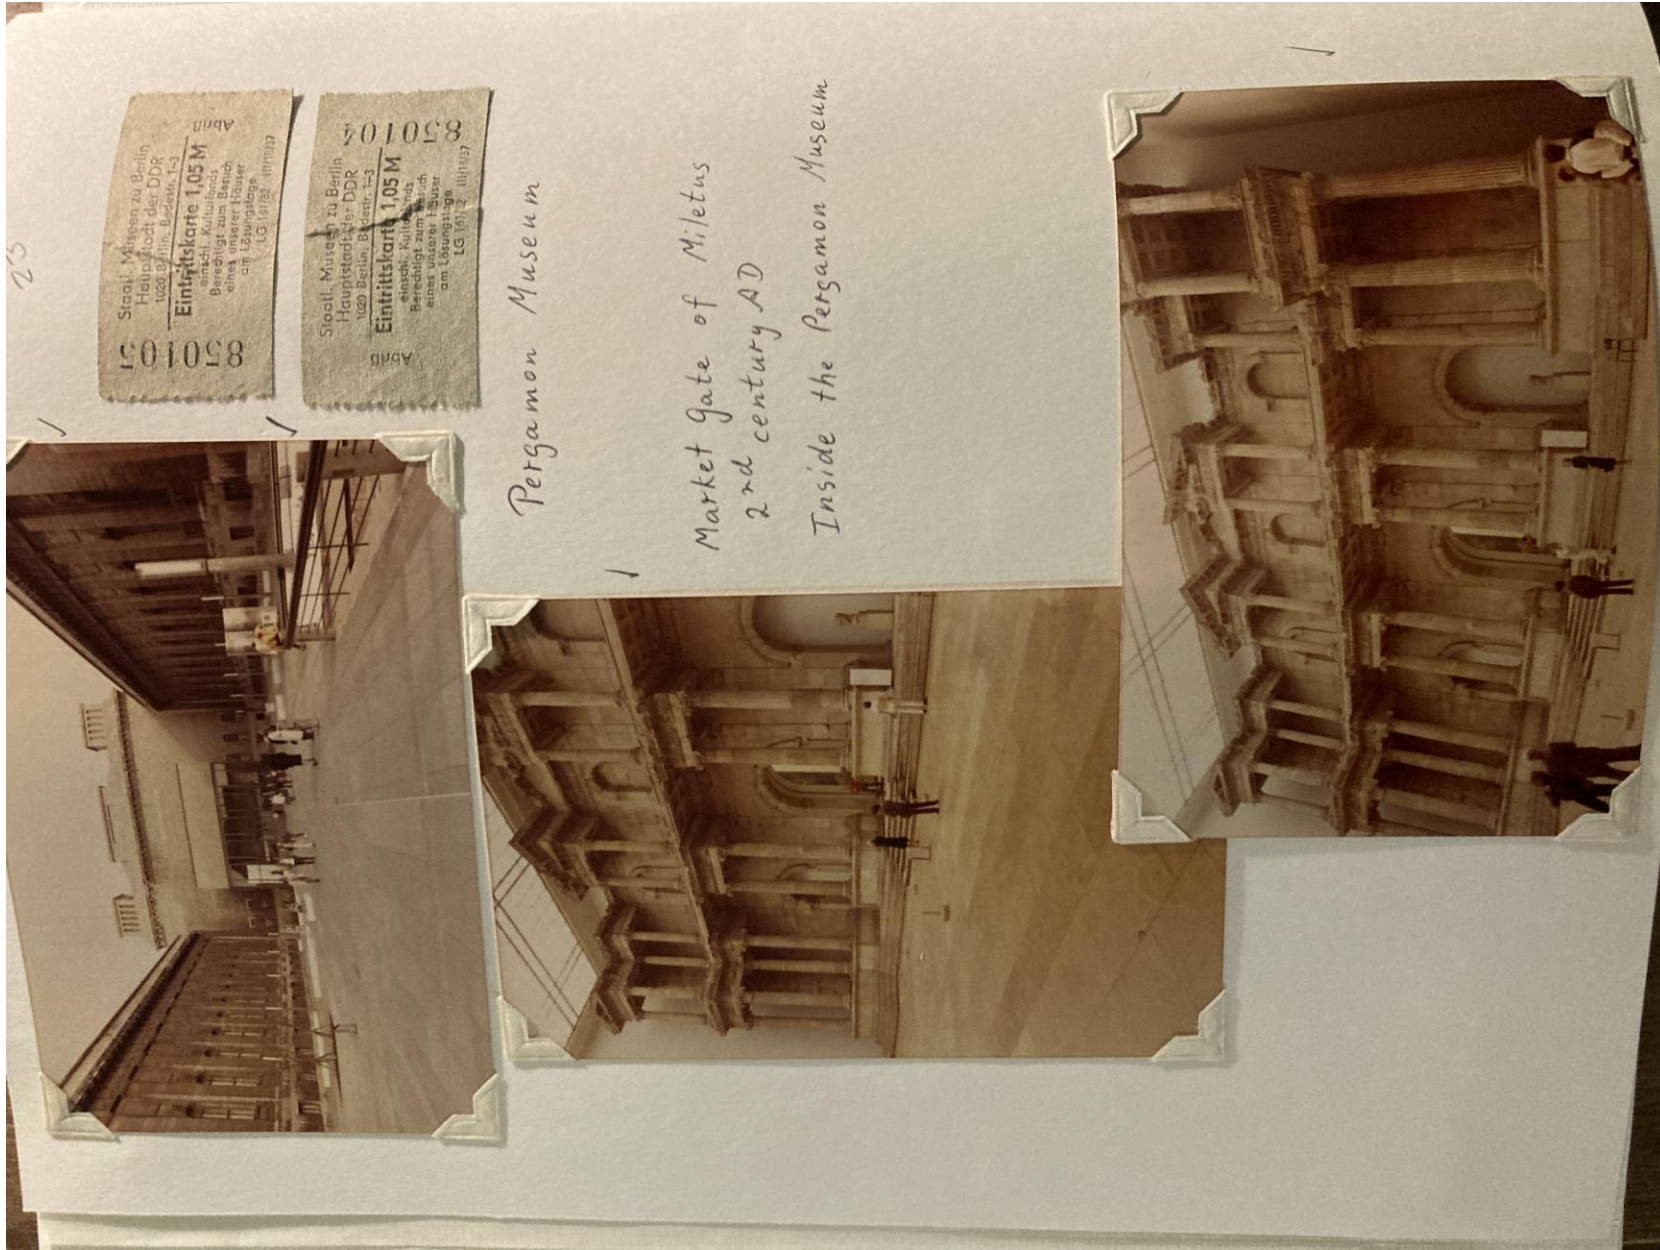 23
Staatl. Museen zu Berlin
Hauptstadt der DDR
1020 Berlin, Bodestr. 1–3
Eintrittskarte 1,05 M
einschl. Kulturfonds
Berechtigt zum Besuch
eines unserer Häuser
am Lösungstage
LG 161/82 III/18/37
850105
Abriß
Staatl. Museen zu Berlin
Hauptstadt der DDR
1020 Berlin, Bodestr. 1–3
Eintrittskarte 1,05 M
einschl. Kulturfonds
Berechtigt zum Besuch
eines unserer Häuser
am Lösungstage
LG 161/82 III/18/37
Abriß
850104
Pergamon Museum
Market Gate of Miletus
2nd century AD
Inside the Pergamon Museum